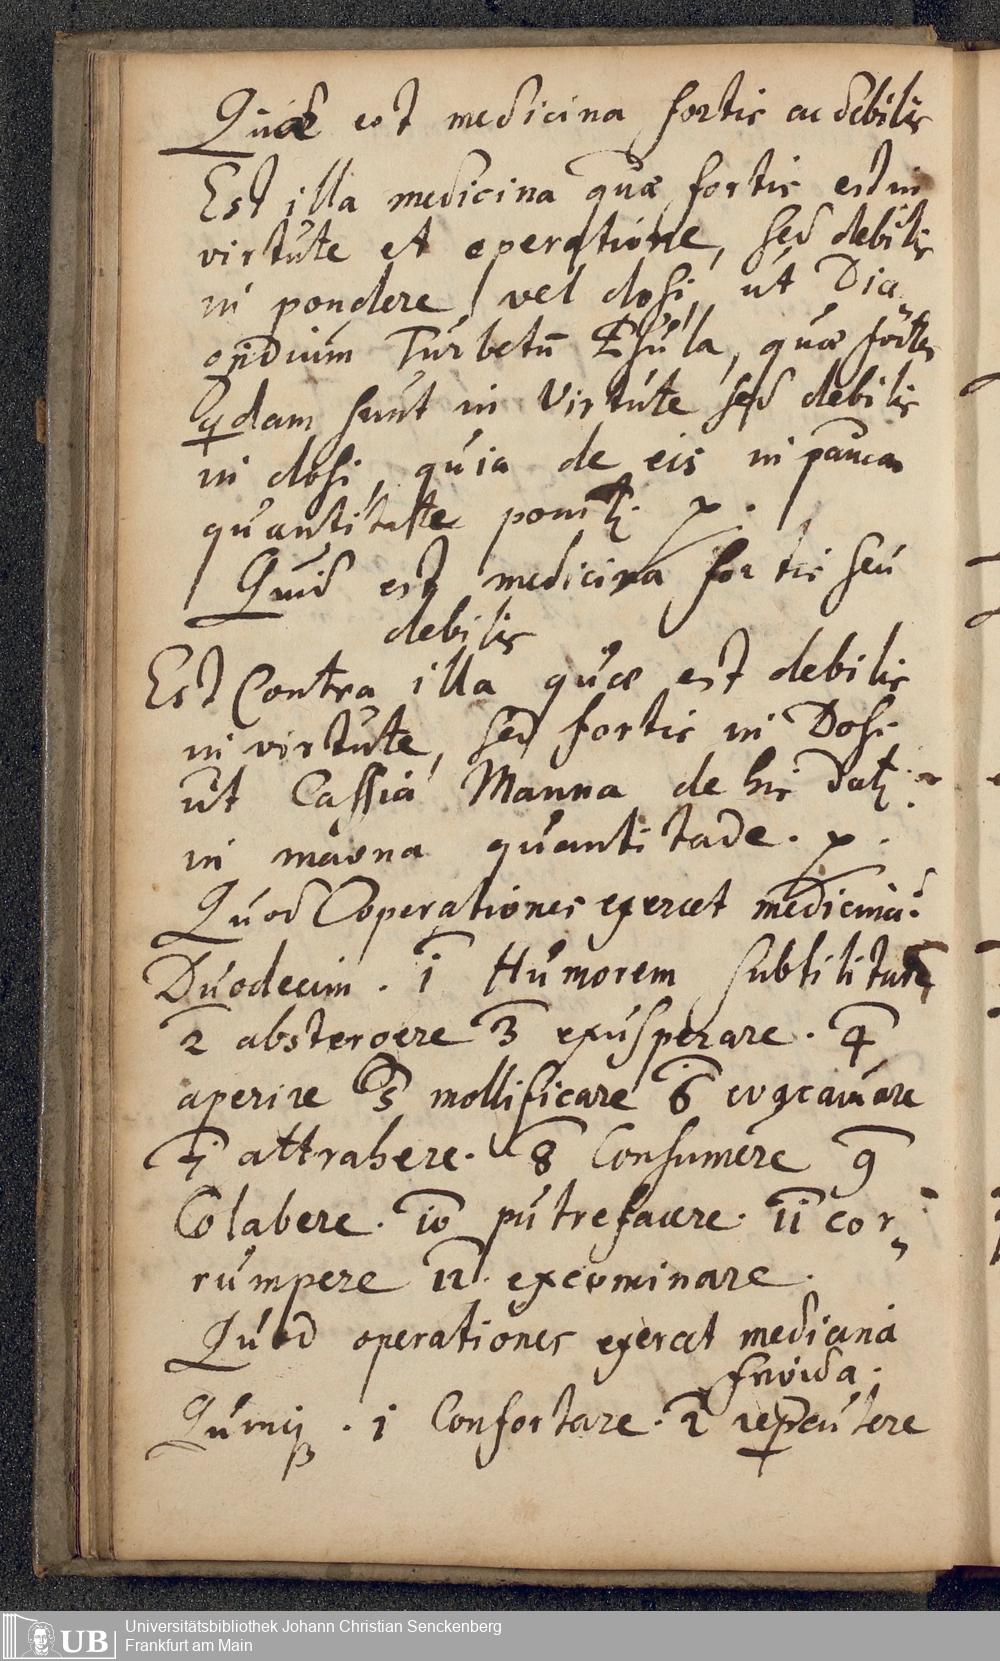 Quae est medicina fortis ac debilis
Est illa medicina quae fortis est in
virtute et operatione, sed debilis
in pondere vel dosi, ut Dia
gridium Turbetu Esula, quae fortes
qdam sunt in Virtute sed debilis
in dosi, quia de eis in pauca
quantitatte
Quid est medicina fortis seu
debilis
Est Contra illa quae est debilis
in virtute, sed fortis in Dosi
ut Cassia Manna de his
in magna quantitade.
Quod operationes exercet medicina
Duodecim . 1 Humorem subtilitare
2 abstergere 3 exusperare . 4
aperire 5 mollificare 6
7 attrahere . 8 Consumere 9
Colabere . 10 putrefacere . 11 cor
rumpere 12 . exgominare .
Quod operationes exercet medicina
frigida .
Quinq . 1 Confortare . 2 repcutere
Universitätsbibliothek Johann Christian Senckenberg
Frankfurt am Main
UB